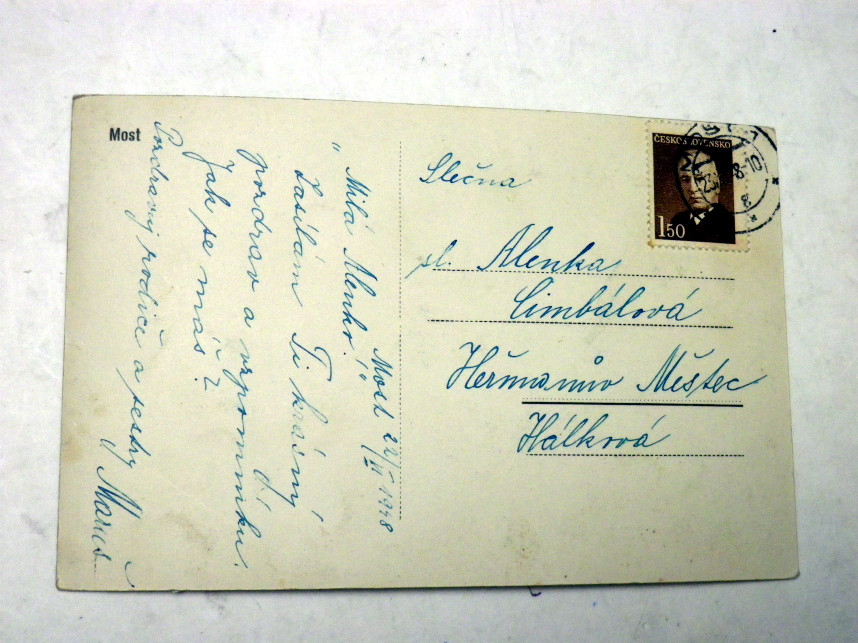 Most
Most 22/VI 1948
„Milá Alenko!"
Zasílám Ti krásný
pozdrav a vzpomínku.
Jak se máš?
Pozdravuj rodiče a sestry
Slečna
sl. Alenka
Cimbálová
Heřmanův Městec
Hálková
ČESKOSLOVENSKO
150